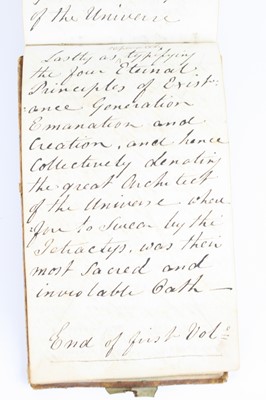 of the Universe
Lastly as typifying
the four Eternal
Principles of Exist-
ance Generation
Emanation and
Creation, and hence
Collectively denoting
the great Architect
of the Universe where
fore to Swear by the
Tetractys, was their
most Sacred and
inviolable Oath —
End of first Vol.